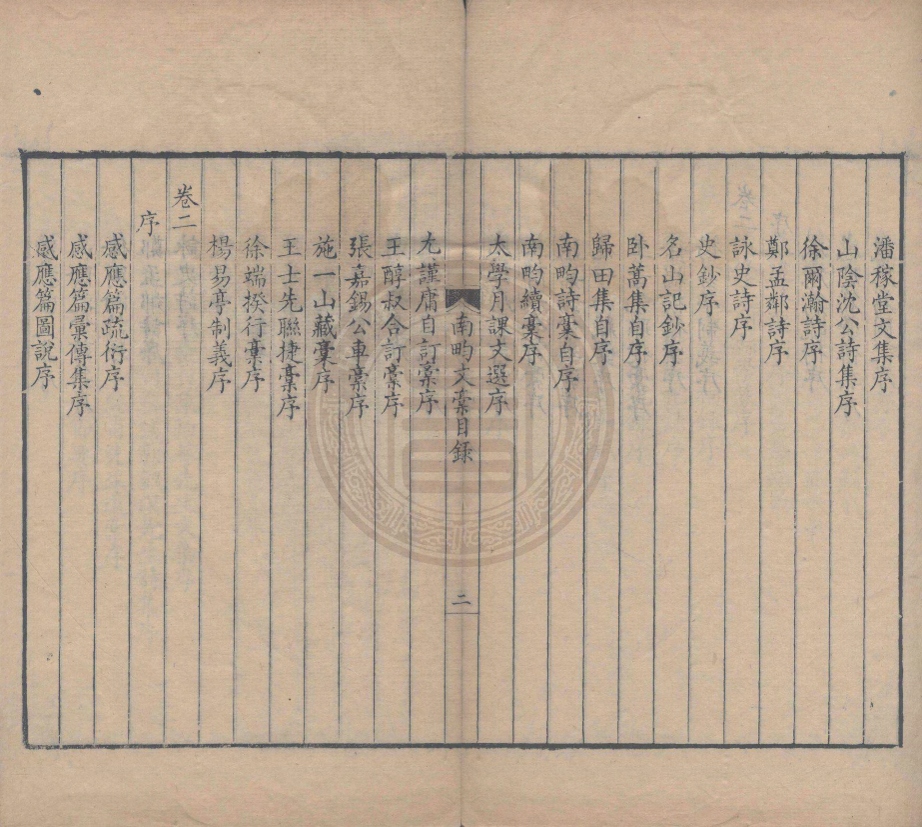 潘稼堂文集序
山陰沈公詩集序
徐爾瀚詩序
鄭孟鄰詩序
詠史詩序
史鈔序
名山記鈔序
卧蒿集自序
歸田集自序
南畇詩藁自序
南畇續藁序
太學月課文選序
南畇文藁目録
二
尤謹庸自訂藁序
王醇叔合訂藁序
張嘉錫公車藁序
施一山藏藁序
王士先聯捷藁序
徐端揆行藁序
楊易亭制義序
卷二
序
感應篇疏衍序
感應篇彙傳集序
感應篇圖說序